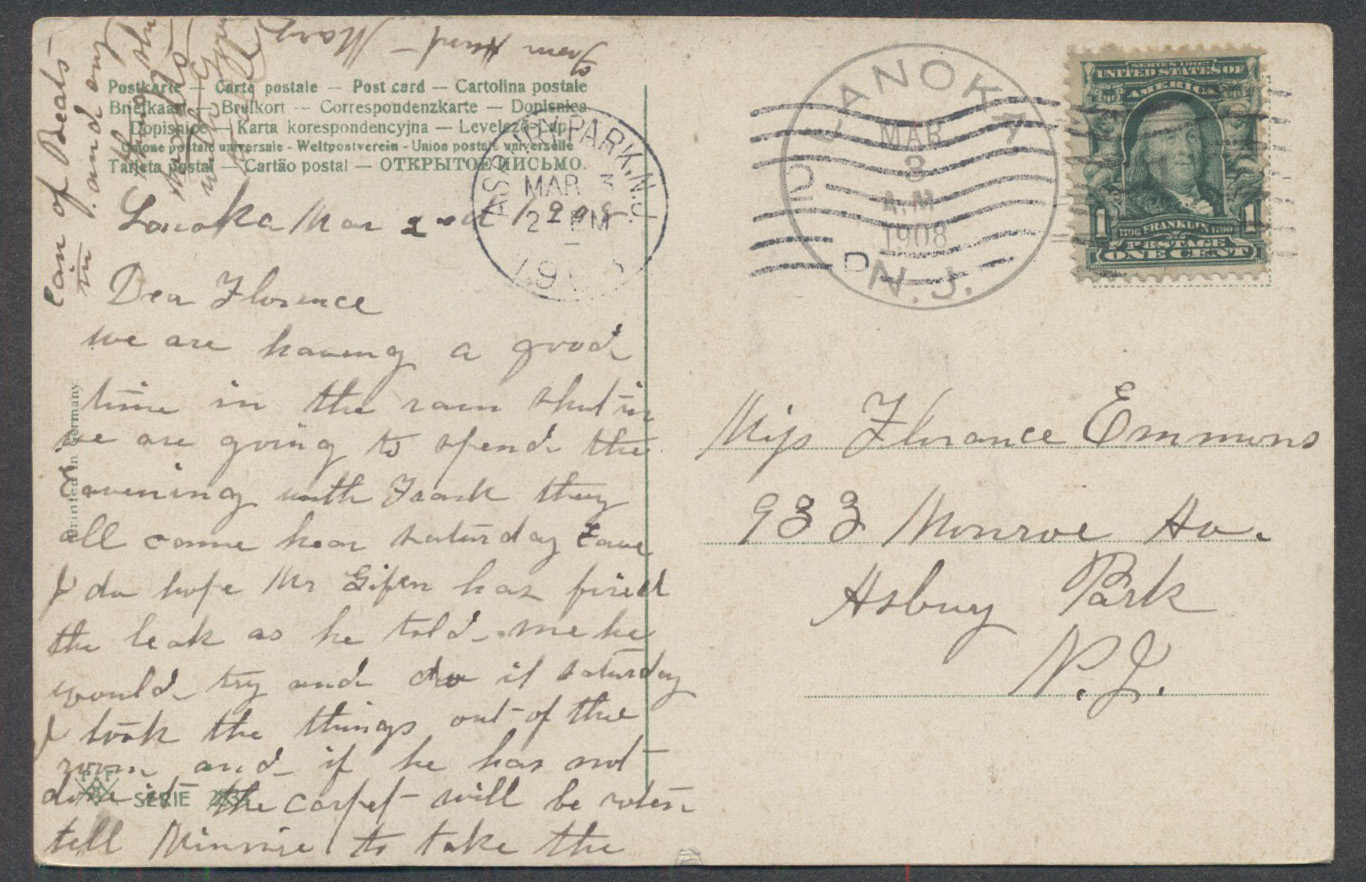 from Aunt Mary
Postkarte — Carte postale — Post card — Cartolina postale
Briefkaart — Brefkort — Correspondenzkarte — Dopisnica
Dopisnice — Karta korespondencyjna — Levelező-Lap
Unione postale universale - Weltpostverein - Union postale universelle
Tarjeta postal — Cartão postal — ОТКРЫТОЕ ПИСЬМО.
Lanoka Mar 2nd 1908
Dear Florence
we are having a good
time in the rain shut in
we are going to spend the
evening with Frank they
all came hear saturday eave
I do hope Mr has fixed
the leak as he told me he
would try and do it saturday
I took the things out of the
room and if he has not
done it the carpet will be roten
tell to take the
can of Beats
in and any
Printed in Germany
PFB
SERIE
ASBURY PARK, N.J.
MAR 3
2 PM
1908
LANOKA
MAR
3
A.M.
1908
N.J.
SERIES 1902
UNITED STATES OF
AMERICA
1 1
1706 FRANKLIN 1790
POSTAGE
ONE CENT
Miss Florance Emmons
933 Monroe Av.
Asbury Park
N.J.